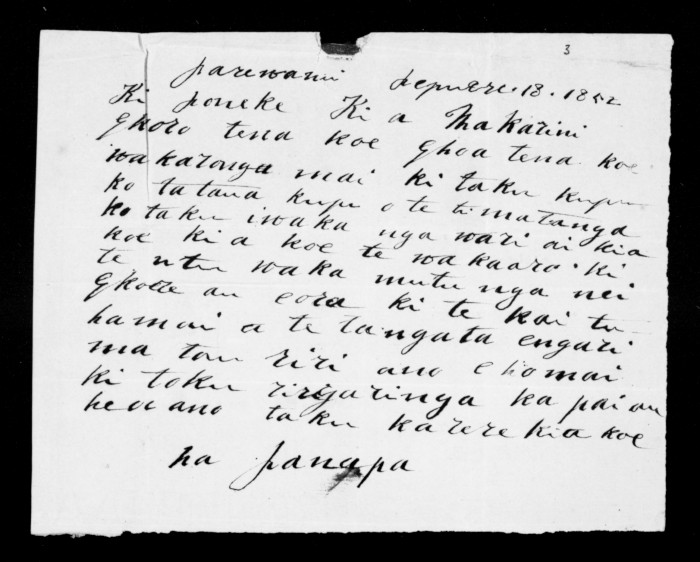 3
parewanui pepuere. 18. 1852
Ki poneke Ki a Makarini
ehoro tena koe ehoa tena koe
wakaronga mai ki taku kupu
ko tatana kupu o te timatanga
ko taku iwaka nga wari ai kia
koe ki a koe te wakaaro ki
te utu waka mutu nga nei
ehoe au eora ki te kai tu
hamai a te tangata engari
ma tou riri ano e homai
ki toku ringaringa ka pai au
heoi ano taku karere kia koe
na panapa